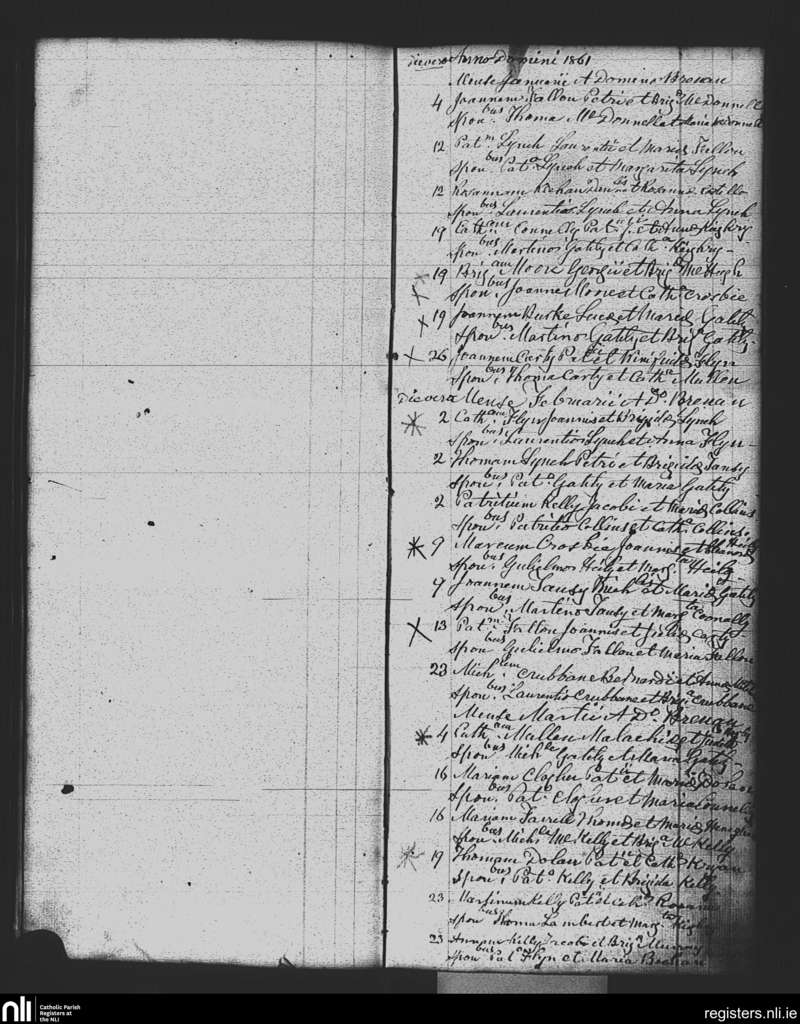 Anno Domini 1861
Mense Januarii A Domino Brenan
4 Joannem Fallon Petri et Brigª McDonnell
Sponbus Thoma McDonnell et Maria McDonnell
12 Patm Lynch Laurentii et Mariæ Fallon
Sponbus Pato Lynch et Margarita Lynch
12 Rosannam et Rosannæ Costello
Sponbus Laurentio Lynch et Anna Lynch
19 Catham Connelly Patii et Annæ
Sponbus Martino Gately et Catha
19 Brigam Moore Georgii et Brigæ McHugh
Sponbus Joanne Mone et Catha Crosbie
19 Joannem Burke Lucæ et Mariæ Gately
Sponbus Martino Gately et Briga Gately
26 Joannem Carty Patii et Winifridæ Flyn
Sponbus Thoma Carty et Catha Mullon
Mense Februarii A Do Brenan
2 Catham Flyn Joannis et Brigidæ Lynch
Sponbus Laurentio Lynch et Anna Flyn
2 Thomam Lynch Petri et Brigidæ Tansy
Sponbus Pato Gately et Maria Gately
2 Patritium Kelly Jacobi et Mariæ Collins
Sponbus Patritio Collins et Catha Collins
9 Marcum Crosbie Joannis et Eleanoræ
Sponbus Gulielmo Heily et Marg Heily
9 Joannem Tansy Michlis et Mariæ Gately
Sponbus Martino Tansy et Margta Connolly
13 Patm Fallon Joannis et Juliæ Carty
Sponbus Gulielmo Fallon et Maria Fallon
23 Michlem Crubbane Bernardi et Annæ
Sponbus Laurentio Crubbane et Briga Crubbane
Mense Martii A Do Brenan
4 Catham Mullen Malachiæ et
Sponbus Michle Gately et Maria Gately
16 Mariam Clogher Patii et Mariæ Dolan
Sponbus Pato Clogher et Maria
16 Mariam Farrell Thomæ et Mariæ
Sponbus Michle McKelly et Briga McKelly
19 Thomam Dolan Patii et Cathæ
Sponbus Pato Kelly et Brigida Kelly
23 Martinum Kelly Patii et Cathæ
Sponbus Thoma Lambert et Margta
23 Annam Kelly Jacobi et Brigæ Murray
Sponbus Pato Flyn et Maria
nli
Catholic Parish
Registers at
the NLI
registers.nli.ie